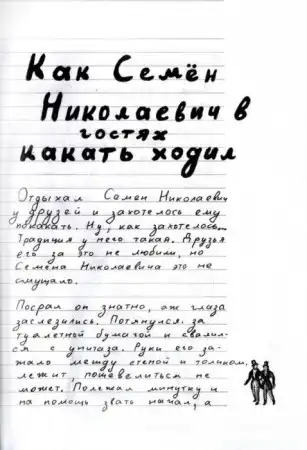 Как Семён
Николаевич в
гостях
какать ходил
Отдыхал Семен Николаевич
у друзей и захотелось ему
покакать. Ну, как захотелось...
Традиция у него такая. Друзья
его за это не любили, но
Семёна Николаевича это не
смущало.
Посрал он знатно, аж глаза
заслезились. Потянулся за
туалетной бумагой и свалил-
ся с унитаза. Руки его за-
жало между стеной и толчком,
лежит, пошевелиться не
может. Полежал минутку и
на помощь звать начал, а